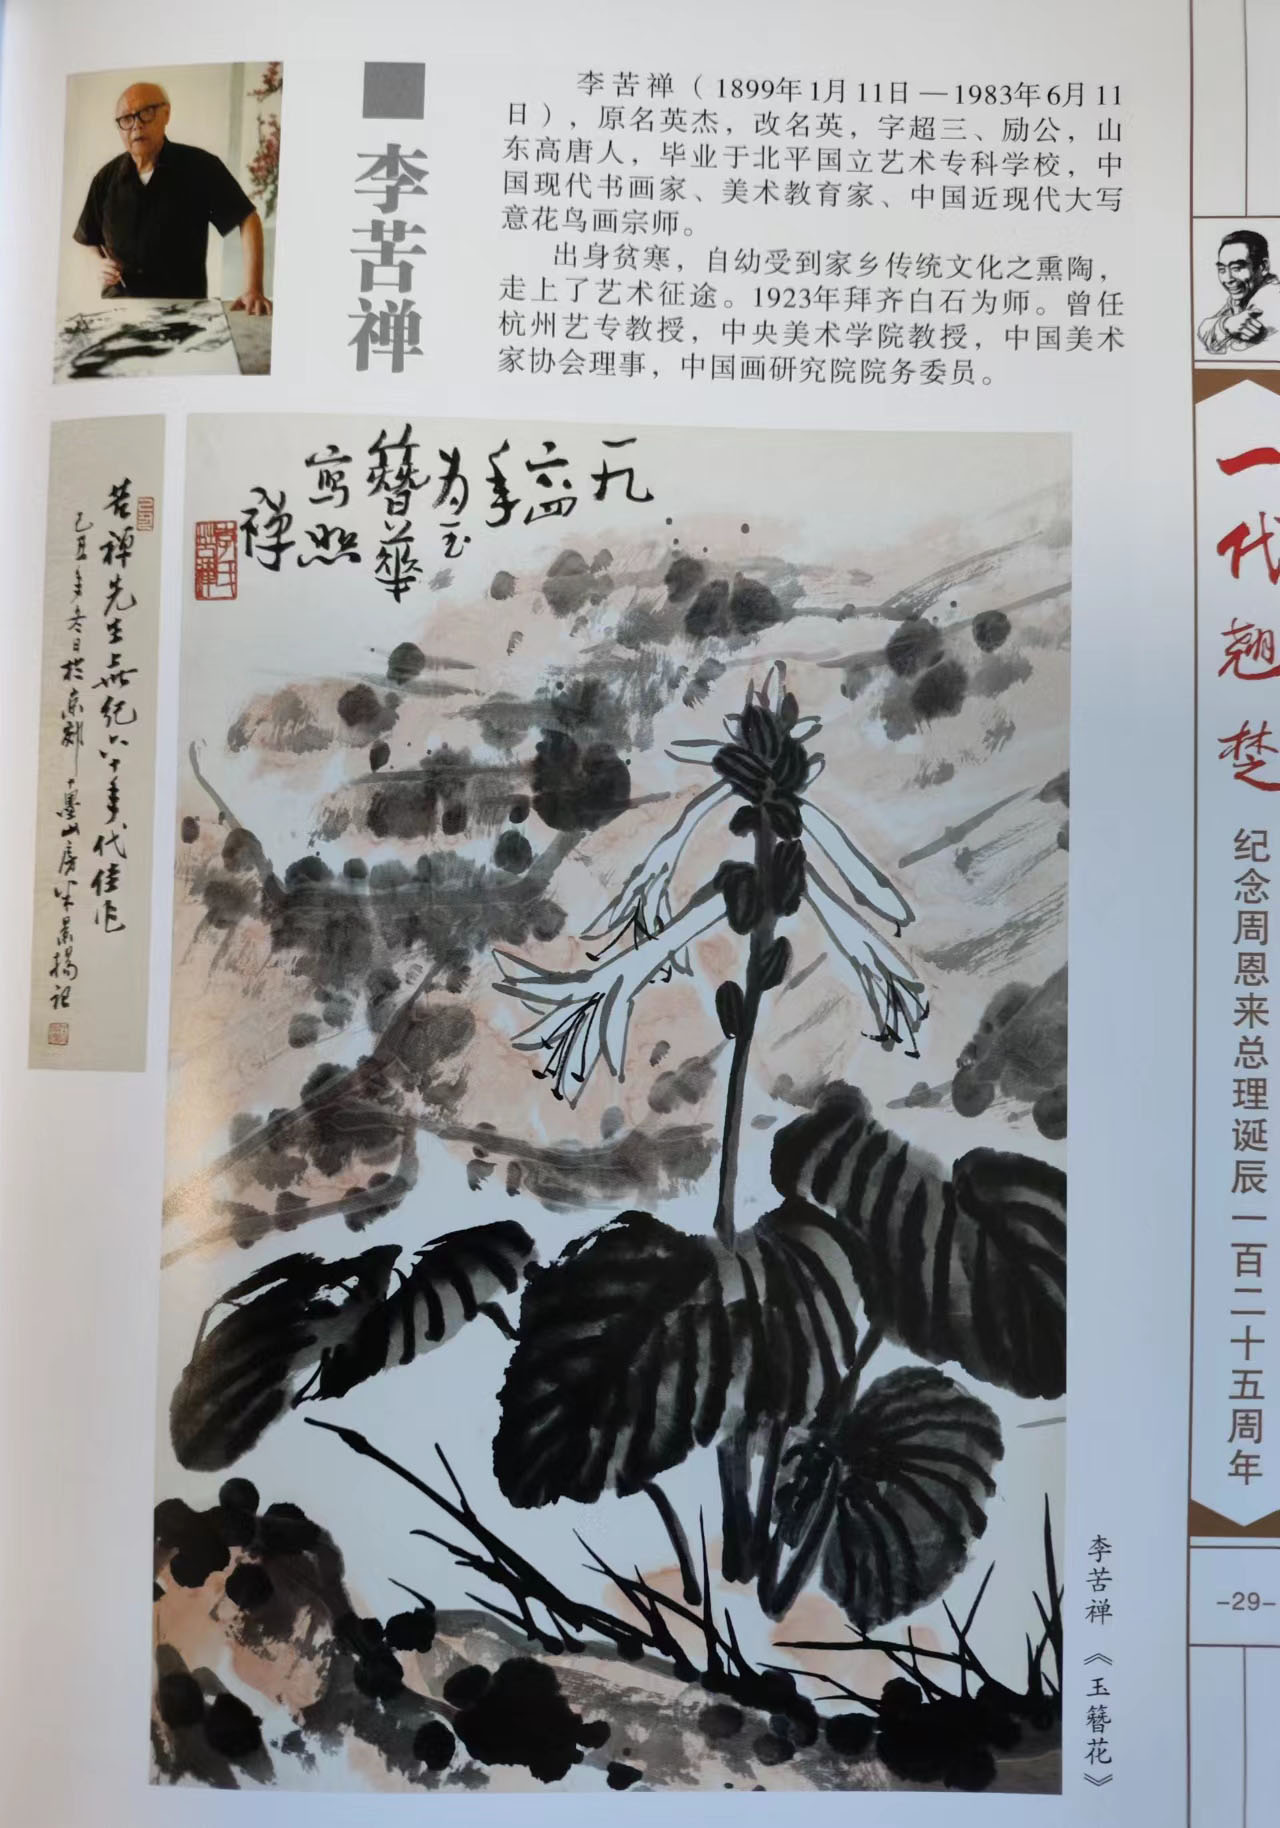 李苦禅
李苦禅（1899年1月11日—1983年6月11
日），原名英杰，改名英，字超三、励公，山
东高唐人，毕业于北平国立艺术专科学校，中
国现代书画家、美术教育家、中国近现代大写
意花鸟画宗师。
出身贫寒，自幼受到家乡传统文化之熏陶，
走上了艺术征途。1923年拜齐白石为师。曾任
杭州艺专教授，中央美术学院教授，中国美术
家协会理事，中国画研究院院务委员。
一九
六四
年
为玉
簪華
寫照
禅
李氏
苦禅
苦禅先生世纪六十年代佳作
己丑年冬日於京郊十墨山房
一代翘楚
纪念周恩来总理诞辰一百二十五周年
-29-
李苦禅《玉簪花》